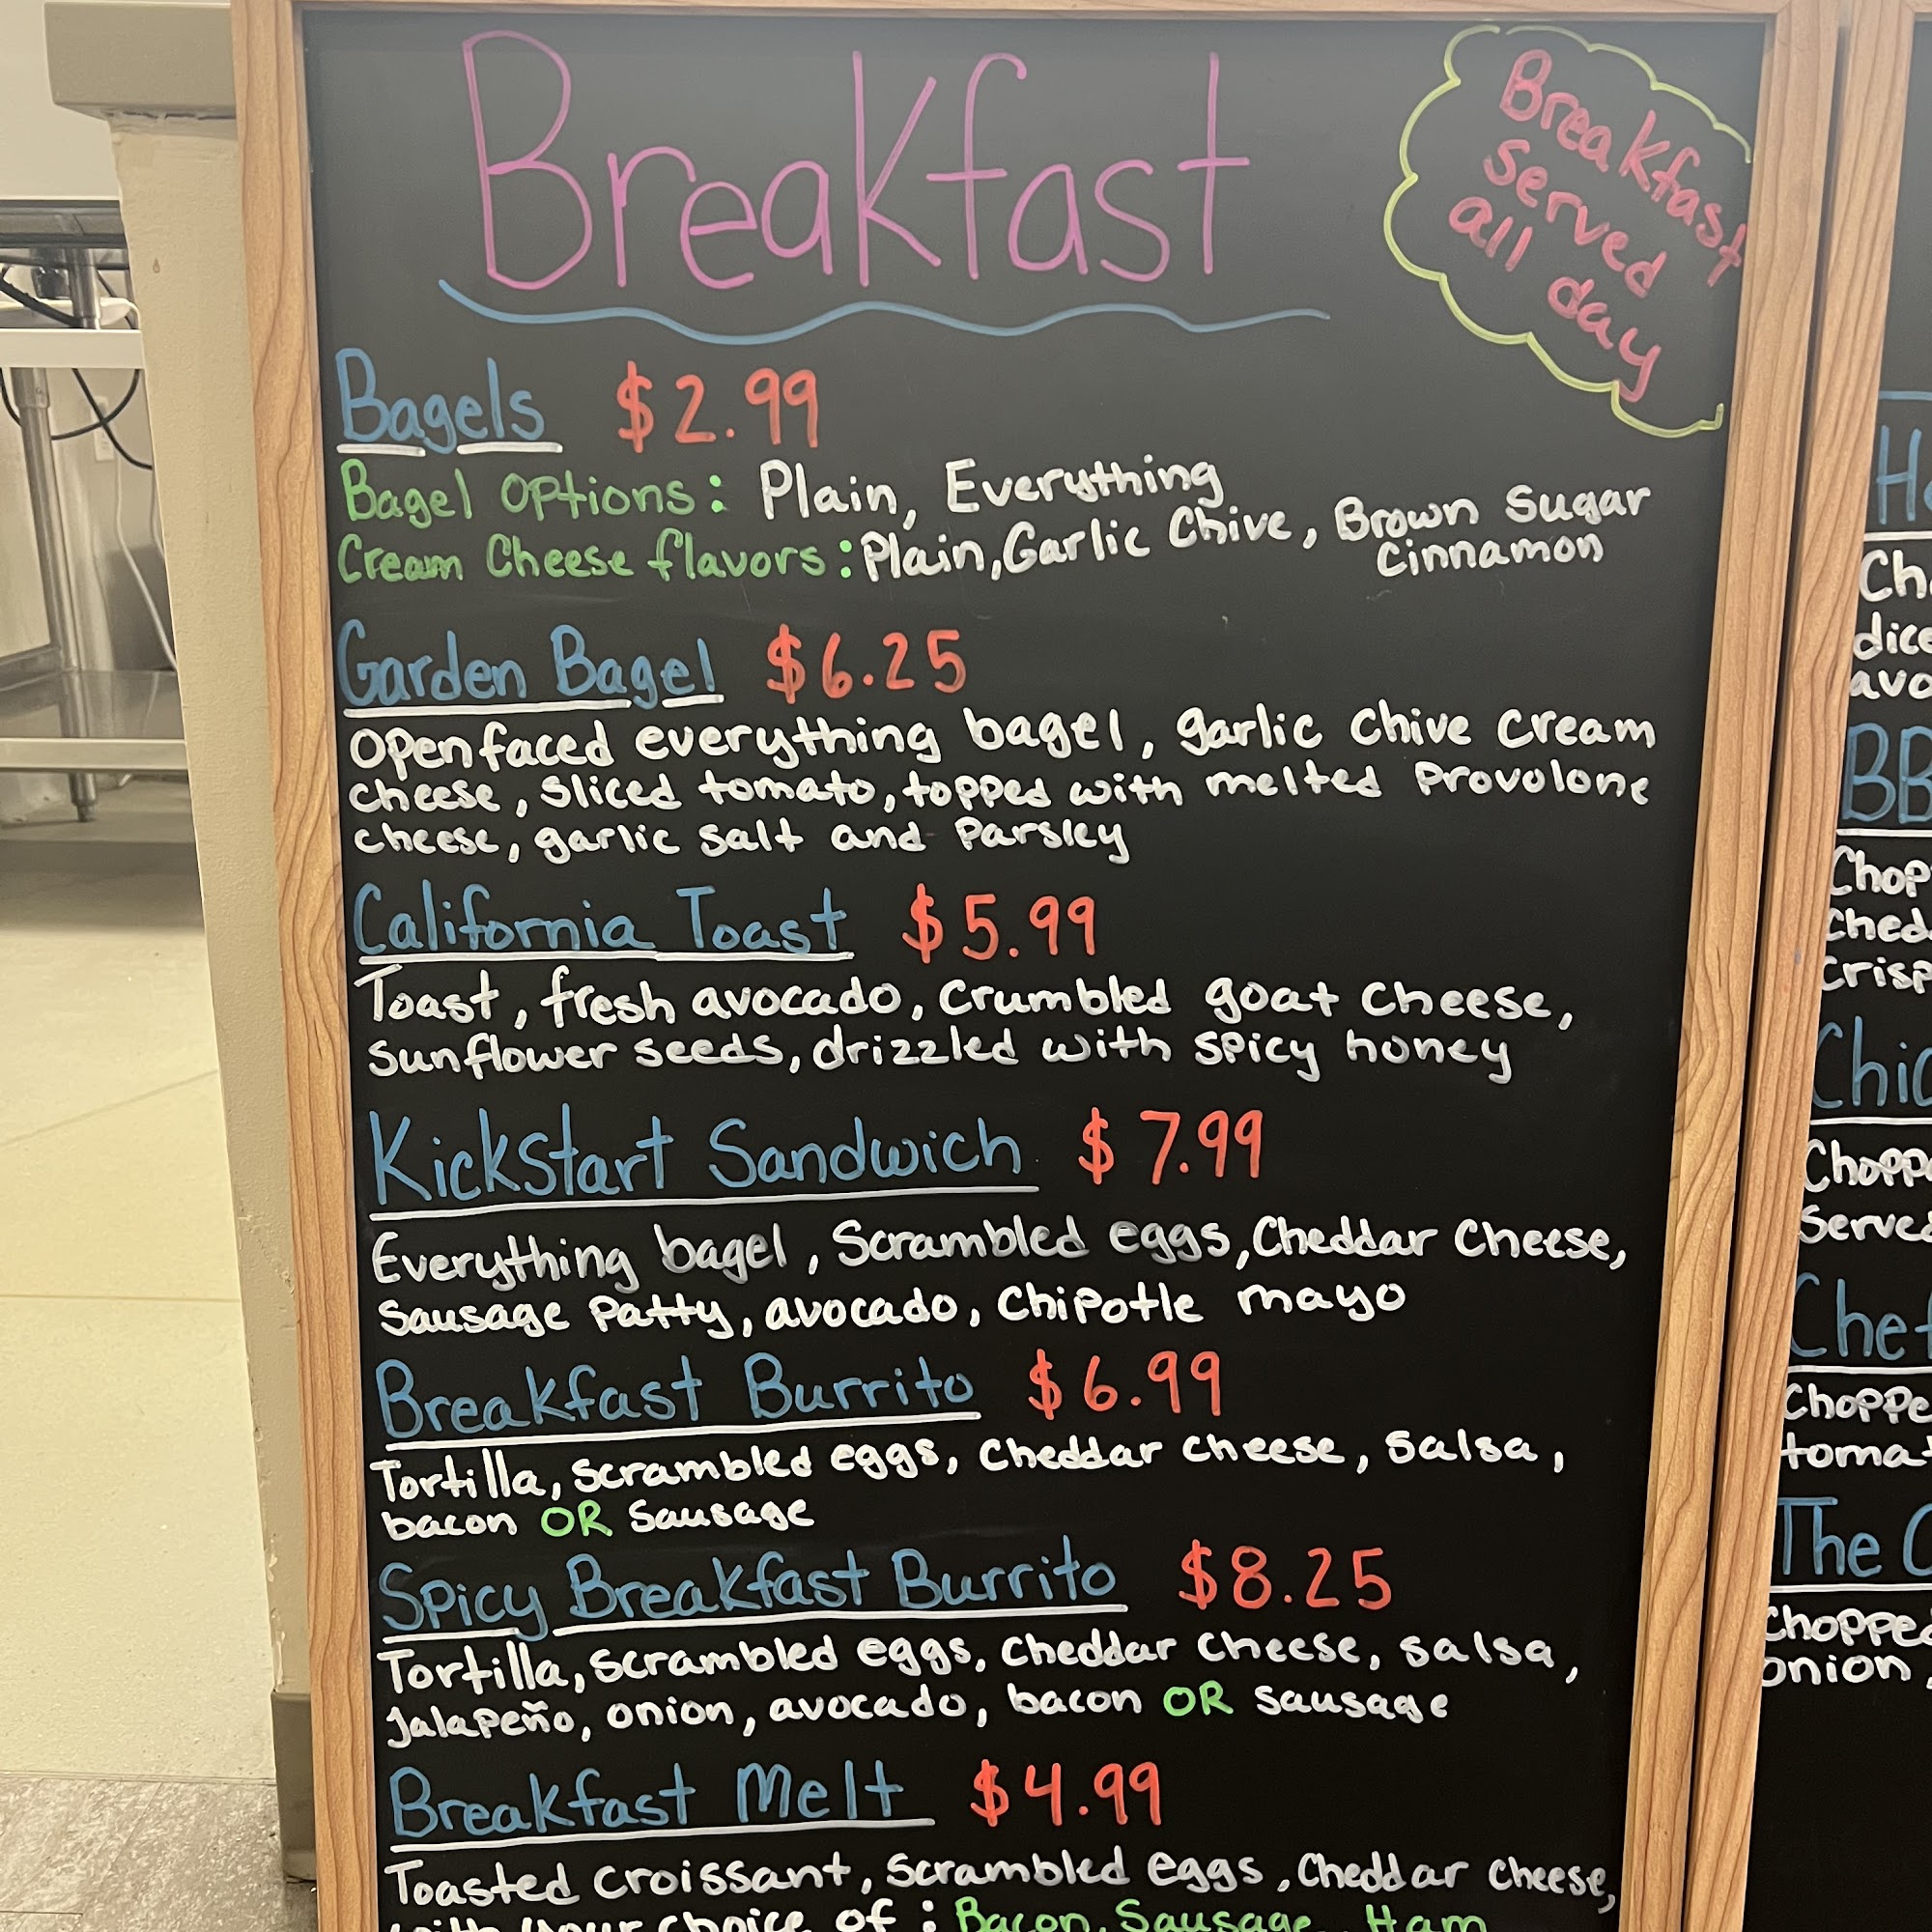 Breakfast
Breakfast
served
all day
Bagels $2.99
Bagel Options: Plain, Everything
Cream Cheese flavors: Plain, Garlic Chive, Brown Sugar
Cinnamon
Garden Bagel $6.25
Open faced everything bagel, garlic chive cream
cheese, sliced tomato, topped with melted provolone
cheese, garlic salt and parsley
California Toast $5.99
Toast, fresh avocado, crumbled goat cheese,
sunflower seeds, drizzled with spicy honey
Kickstart Sandwich $7.99
Everything bagel, Scrambled eggs, Cheddar Cheese,
Sausage Patty, avocado, Chipotle mayo
Breakfast Burrito $6.99
Tortilla, scrambled eggs, Cheddar cheese, salsa,
bacon OR Sausage
Spicy Breakfast Burrito $8.25
Tortilla, scrambled eggs, Cheddar cheese, salsa,
Jalapeño, onion, avocado, bacon OR Sausage
Breakfast Melt $4.99
Toasted croissant, scrambled eggs, Cheddar cheese,
with your choice of: Bacon, Sausage, Ham
The
onion,